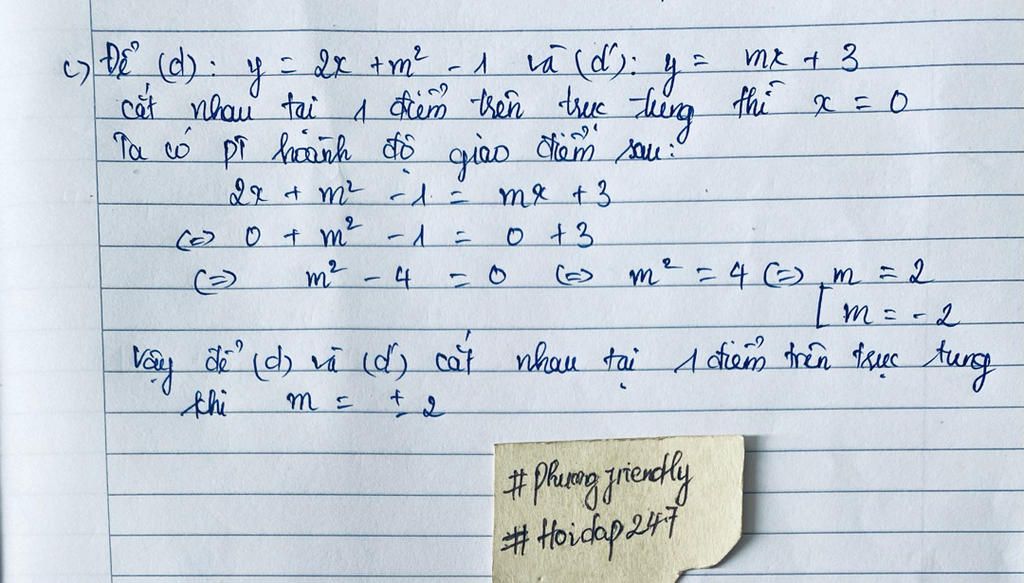 c) Để (d): y = 2x + m² - 1 và (d'): y = mx + 3
cắt nhau tại 1 điểm trên trục tung thì x = 0
Ta có pt hoành độ giao điểm sau:
2x + m² - 1 = mx + 3
<=> 0 + m² - 1 = 0 + 3
<=> m² - 4 = 0 <=> m² = 4 <=> [ m = 2
m = -2
Vậy để (d) và (d') cắt nhau tại 1 điểm trên trục tung
thì m = ± 2
#Phuongfriendly
#Hoidap247